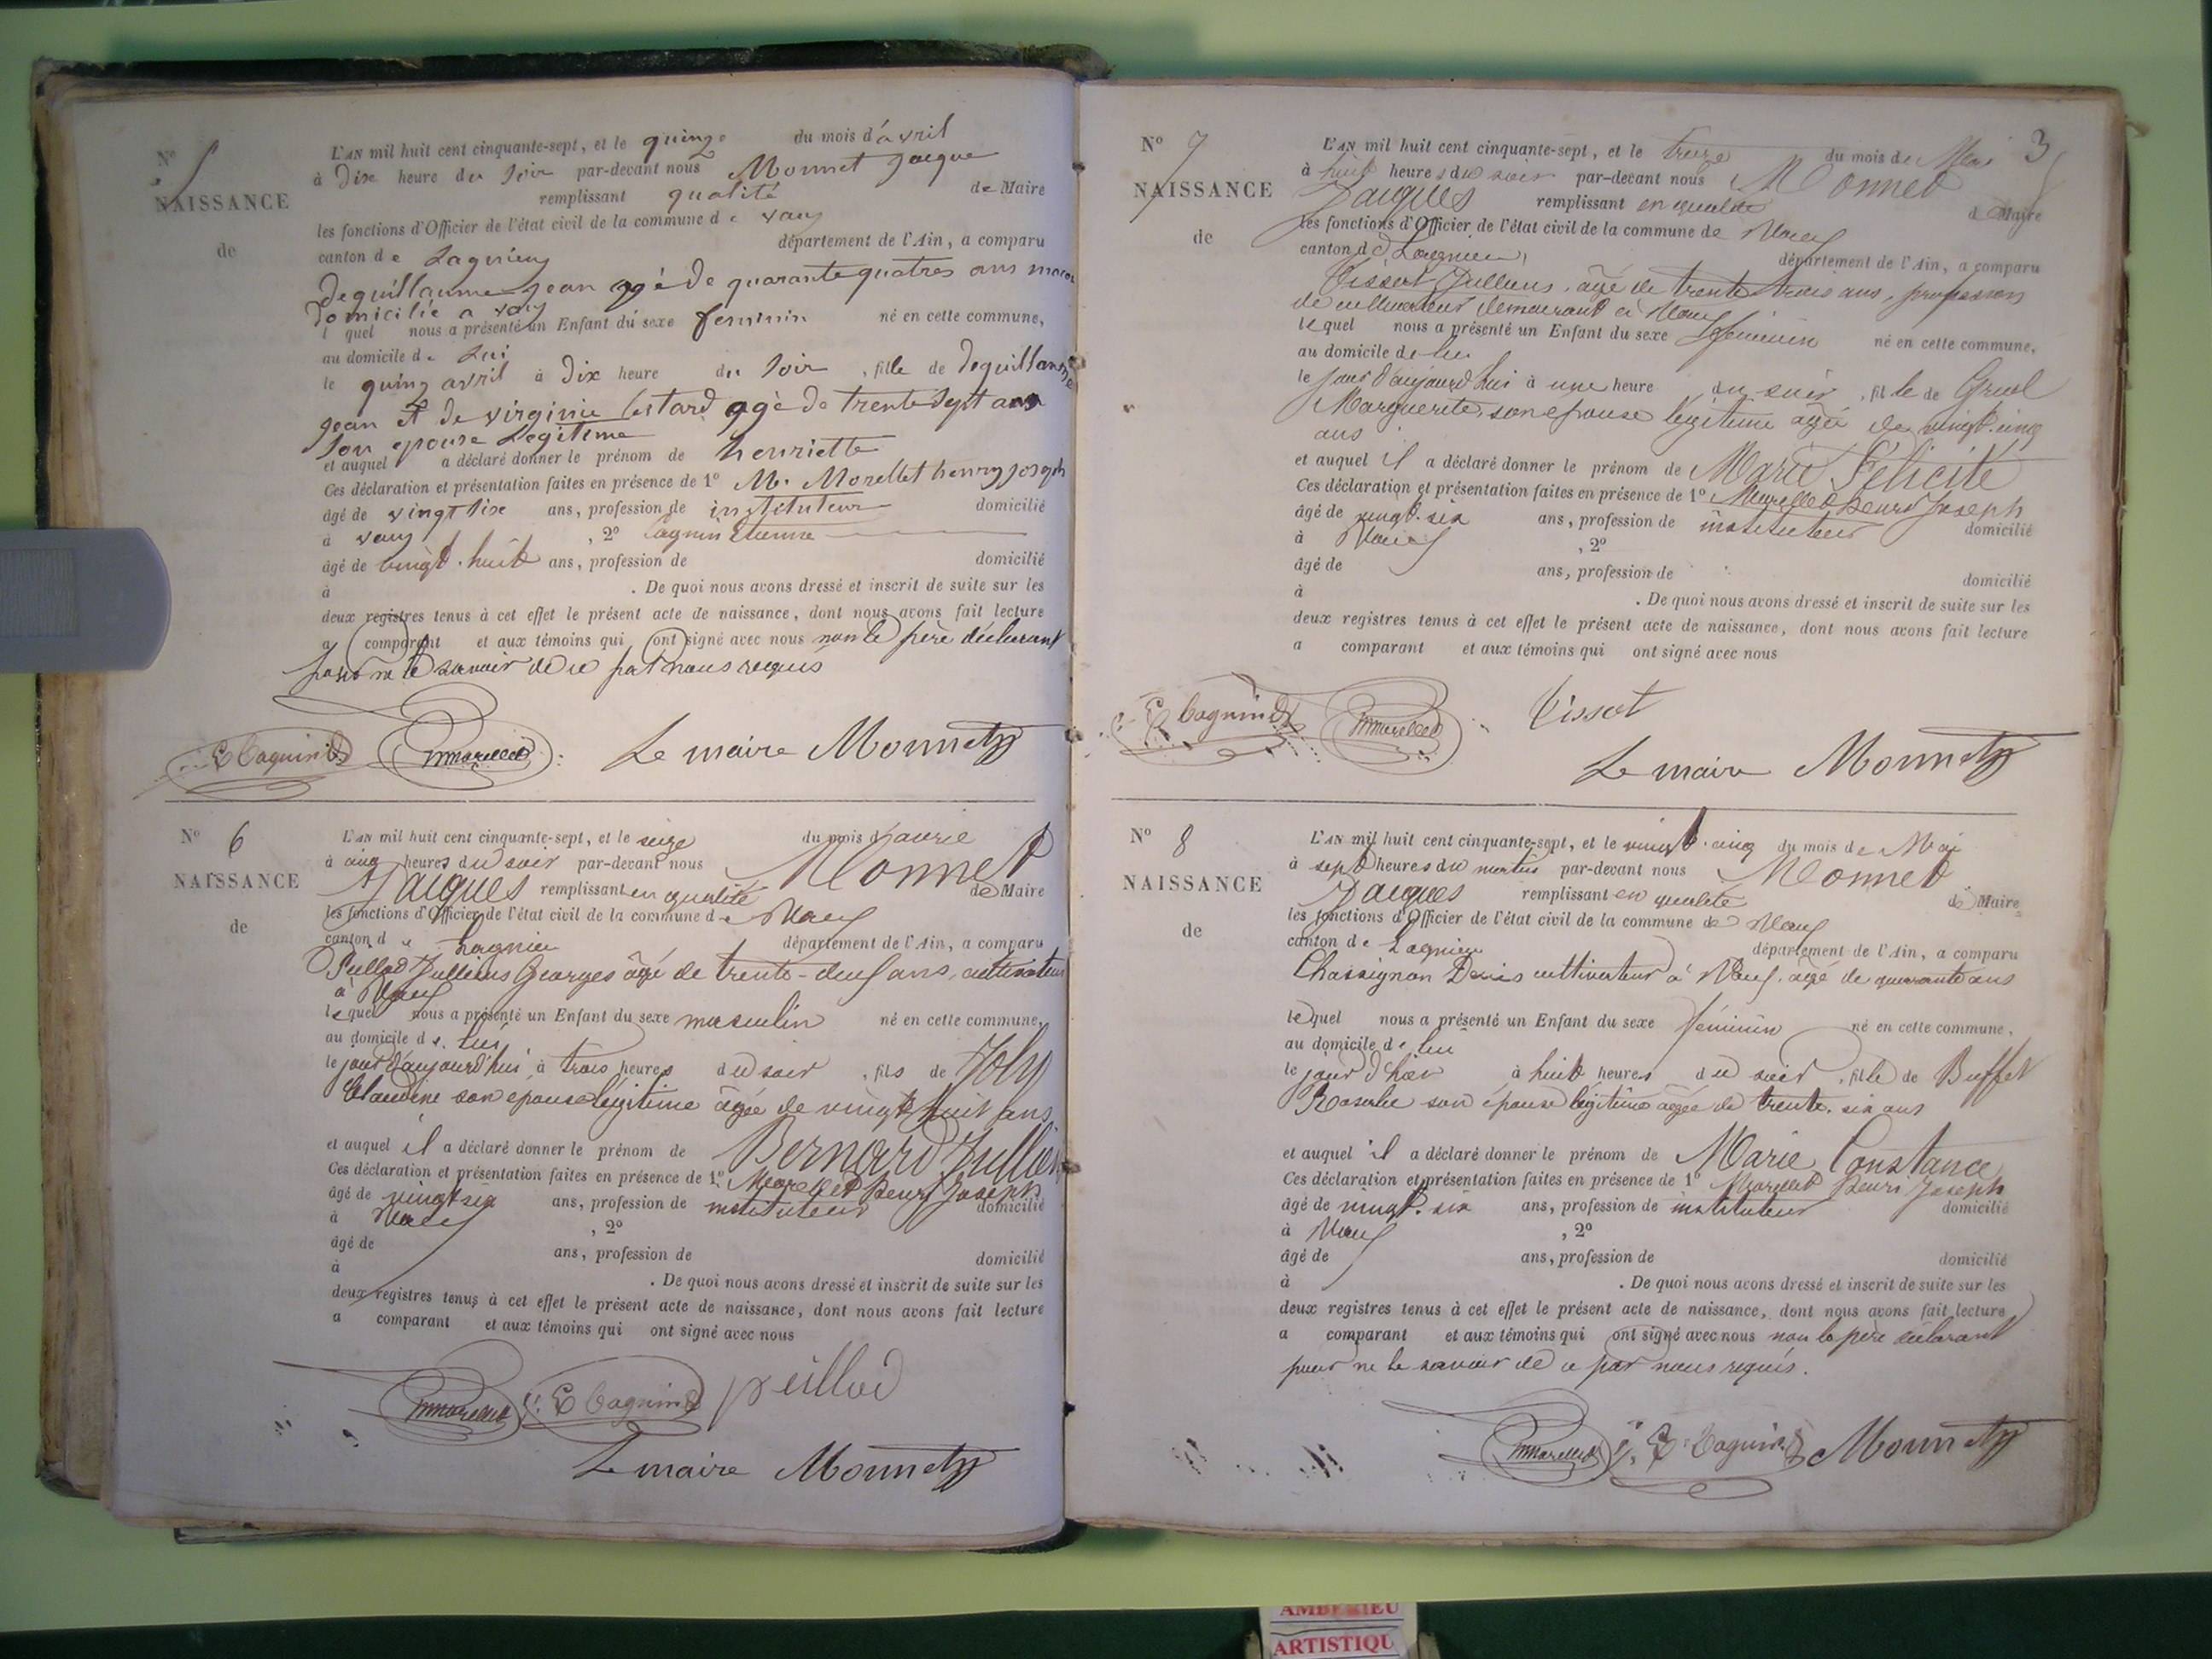 Nº 5
NAISSANCE
de
L'AN mil huit cent cinquante-sept, et le quinze du mois d'avril
à Dix heure du Soir par-devant nous Monnet Jacque
remplissant qualité de Maire
les fonctions d'Officier de l'état civil de la commune de vaux
canton de Lagnieu département de l'Ain, a comparu
Deguillaume jean agé de quarante quatres ans
Domicilié a vaux
l quel nous a présenté un Enfant du sexe feminin né en cette commune,
au domicile de Lui
le quinz avril à Dix heure du Soir, fille de Deguillaume
jean et de virginie agé de trente Sept ans
Son epouse Legitime
et auquel a déclaré donner le prénom de henriette
Ces déclaration et présentation faites en présence de 1º M. Morellet henry joseph
âgé de vingt Six ans, profession de instituteur domicilié
à vaux, 2º Cagnin Etienne
âgé de vingt-huit ans, profession de domicilié
à . De quoi nous avons dressé et inscrit de suite sur les
deux registres tenus à cet effet le présent acte de naissance, dont nous avons fait lecture
a comparant et aux témoins qui ont signé avec nous non le père déclarant
pour ne le savoir de ce par nous requis
E Cagnin Morellet Le maire Monnet
Nº 6
NAISSANCE
de
L'AN mil huit cent cinquante-sept, et le seize du mois d'avril
à cinq heures du soir par-devant nous Monnet
Jacques remplissant en qualité de Maire
les fonctions d'Officier de l'état civil de la commune de Vaux
canton de Lagnieu département de l'Ain, a comparu
Jullien Georges âgé de trente-deux ans, cultivateur
à Vaux
lequel nous a présenté un Enfant du sexe masculin né en cette commune,
au domicile de lui
le jour d'aujourd'hui à trois heures du soir, fils de Joly
Claudine son épouse légitime âgée de vingt huit ans
et auquel il a déclaré donner le prénom de Bernard Jullien
Ces déclaration et présentation faites en présence de 1º Morellet Henri Joseph
âgé de vingt six ans, profession de instituteur domicilié
à Vaux, 2º
âgé de ans, profession de domicilié
à . De quoi nous avons dressé et inscrit de suite sur les
deux registres tenus à cet effet le présent acte de naissance, dont nous avons fait lecture
a comparant et aux témoins qui ont signé avec nous
Morellet E Cagnin peillod
Le maire Monnet
3
Nº 7
NAISSANCE
de
L'AN mil huit cent cinquante-sept, et le treize du mois de Mai
à huit heures du soir par-devant nous Monnet
Jacques remplissant en qualité de Maire
les fonctions d'Officier de l'état civil de la commune de Vaux
canton de Lagnieu département de l'Ain, a comparu
Tissot Jullien, âgé de trente trois ans, profession
de cultivateur demeurant à Vaux
lequel nous a présenté un Enfant du sexe féminin né en cette commune,
au domicile de lui
le jour d'aujourd'hui à une heure du soir, fille de
Marguerite, son épouse légitime agée de vingt-cinq
ans
et auquel il a déclaré donner le prénom de Marie Félicité
Ces déclaration et présentation faites en présence de 1º Morellet Henri Joseph
âgé de vingt-six ans, profession de instituteur domicilié
à Vaux, 2º
âgé de ans, profession de domicilié
à . De quoi nous avons dressé et inscrit de suite sur les
deux registres tenus à cet effet le présent acte de naissance, dont nous avons fait lecture
a comparant et aux témoins qui ont signé avec nous
E Cagnin Morellet Tissot
Le maire Monnet
Nº 8
NAISSANCE
de
L'AN mil huit cent cinquante-sept, et le vingt-cinq du mois de Mai
à sept heures du matin par-devant nous Monnet
Jacques remplissant en qualité de Maire
les fonctions d'Officier de l'état civil de la commune de Vaux
canton de Lagnieu département de l'Ain, a comparu
Chassignon Denis cultivateur à Vaux, agé de quarante ans
lequel nous a présenté un Enfant du sexe féminin né en cette commune,
au domicile de lui
le jour d'hier à huit heures du soir, fille de Buffet
Rosalie son épouse légitime agée de trente-six ans
et auquel il a déclaré donner le prénom de Marie Constance
Ces déclaration et présentation faites en présence de 1º Morellet Henri Joseph
âgé de vingt-six ans, profession de instituteur domicilié
à Vaux, 2º
âgé de ans, profession de domicilié
à . De quoi nous avons dressé et inscrit de suite sur les
deux registres tenus à cet effet le présent acte de naissance, dont nous avons fait lecture
a comparant et aux témoins qui ont signé avec nous non le père déclarant
pour ne le savoir de ce par nous requis.
Morellet E Cagnin Monnet
AMBERIEU
ARTISTIQU